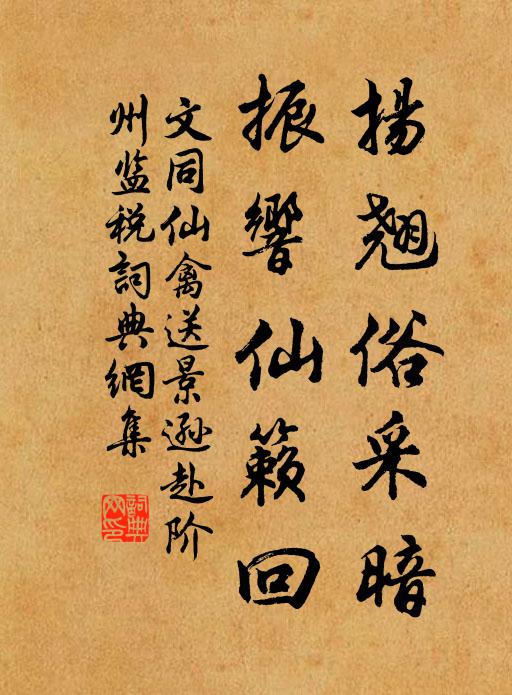 揚翹俗采暗
振響仙籟回
文同仙禽送景遜赴阶
州监税詞典網集
詞典網印